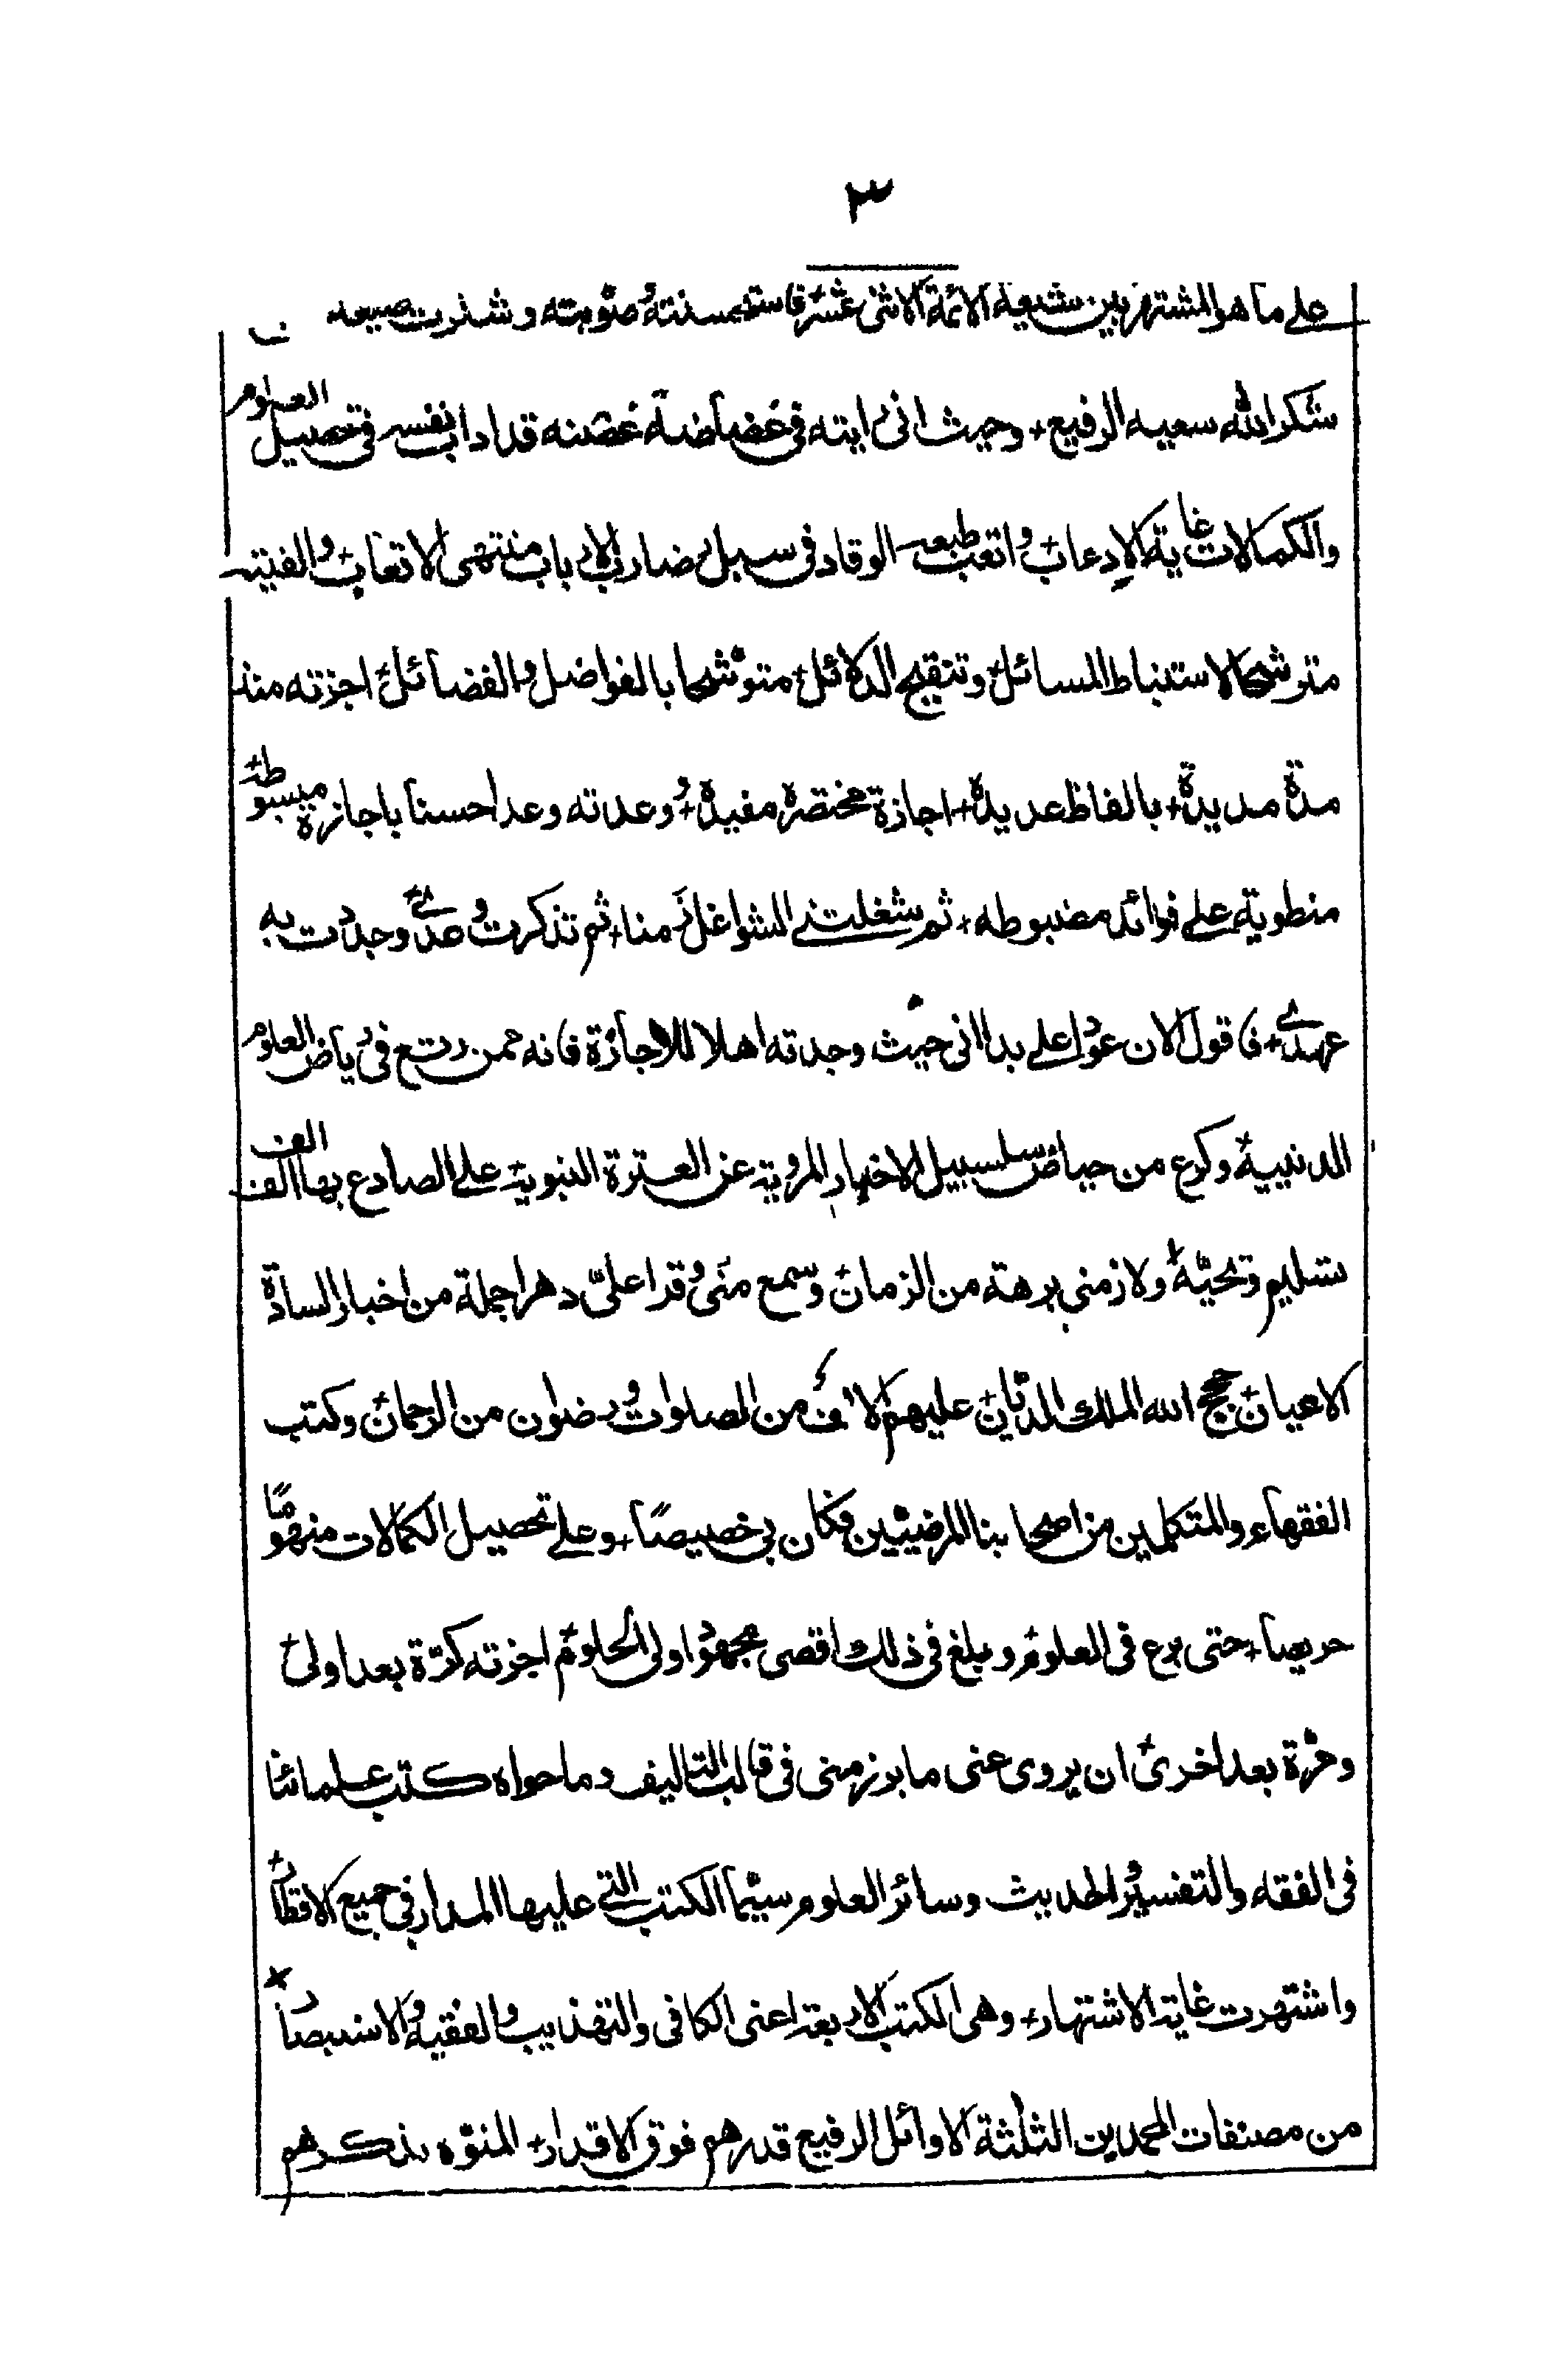 ٣
على ما هو المشتهر بين شيعة الائمة الاثنى عشر فاستحسنته وصوبته وشكرت صنيعه
شكر الله سعيه الرفيع + وحيث انى رايته فى غضاضة غصنه قد ادأب نفسه فى تحصيل العلوم
والكمالات غاية الادءاب + واتعب طبعه الوقاد فى سبل رضا رب الارباب منتهى الاتعاب + والفيته
مترشحا لاستنباط المسائل + وتنقيح الدلائل + متوشحا بالفواضل والفضائل + اجزته منذ
مدة مديدة + بالفاظ عديدة + اجازة مختصرة مفيدة + ووعدته وعدا حسنا باجازة مبسوطة +
منطوية على فوائد مضبوطه + ثم شغلتنى الشواغل زمنا + ثم تذكرت وعدى + وجددت به
عهدى + فاقول الان عودا على بدا انى حيث وجدته اهلا للاجازة فانه ممن رتع فى رياض العلوم
الدينية وكرع من حياض سلسبيل الاخبار المروية عن العترة النبوية + على الصادع بها الف الف
تسليم وتحية + ولازمنى برهة من الزمان + وسمع منى وقرا على دهرا جملة من اخبار السادة
الاعيان + حجج الله الملك الديان + عليهم الاف من الصلوات ورضوان من الرحمان + وكتب
الفقهاء والمتكلمين من اصحابنا المرضيين فكان بى خصيصا + وعلى تحصيل الكمالات منهوما
حريصا + حتى برع فى العلوم + وبلغ فى ذلك اقصى مجهود اولى الحلوم + اجزته كرة بعد اولى +
ومرة بعد اخرى + ان يروى عنى ما برز منى فى قالب التاليف وما حواه كتب علمائنا
فى الفقه والتفسير والحديث وسائر العلوم سيما الكتب التى عليها المدار فى جميع الاقطار +
واشتهرت غاية الاشتهار + وهى الكتب الاربعة اعنى الكافى والتهذيب والفقيه والاستبصار +
من مصنفات المحمدين الثلثة الاوائل الرفيع قدرهم فوق الاقدار + المنوّه بذكرهم